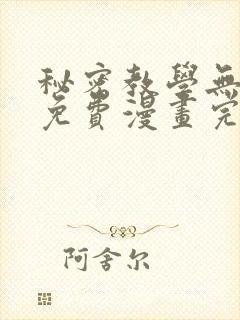 秘密教學無
免費漫畫完
阿舍尔